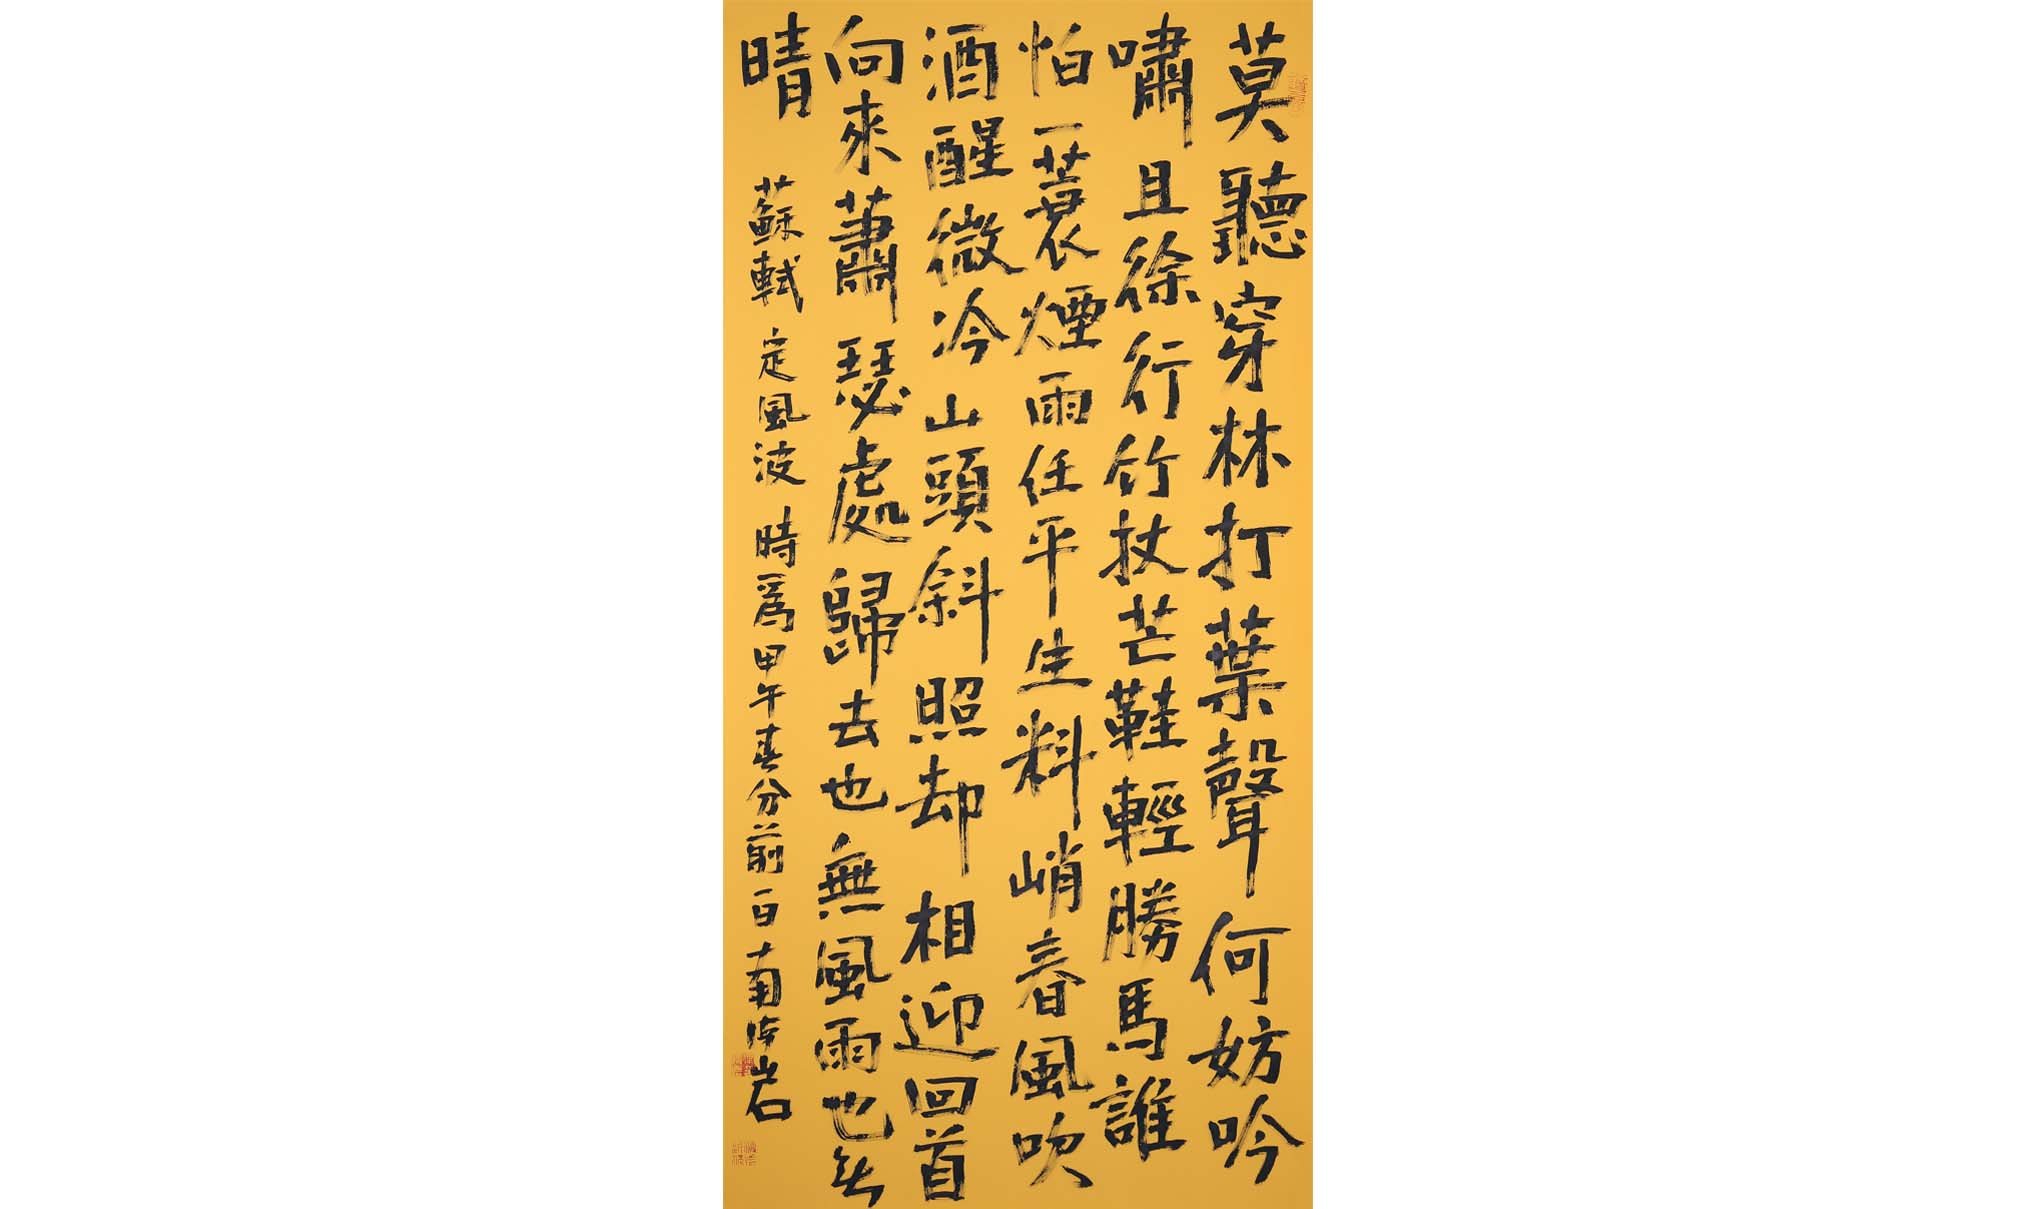 莫聽穿林打葉聲何妨吟
嘯且徐行竹杖芒鞋輕勝馬誰
怕一蓑煙雨任平生料峭春風吹
酒醒微冷山頭斜照却相迎回首
向來蕭瑟處歸去也無風雨也無
晴 蘇軾 定風波 時爲甲午春分前一日南海岩